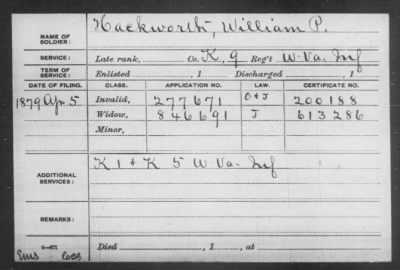 NAME OF SOLDIER: Hackworth, William P.
SERVICE: Late rank, Co. K, 9 Reg't W. Va. Inf
TERM OF SERVICE: Enlisted , 1 Discharged , 1
DATE OF FILING. CLASS. APPLICATION NO. LAW. CERTIFICATE NO.
1879 Apr 5 Invalid, 277671 200188
Widow, 846691 J 613286
Minor,
ADDITIONAL SERVICES: K 1 + K 5 W Va. Inf
REMARKS:
Died , 1 , at